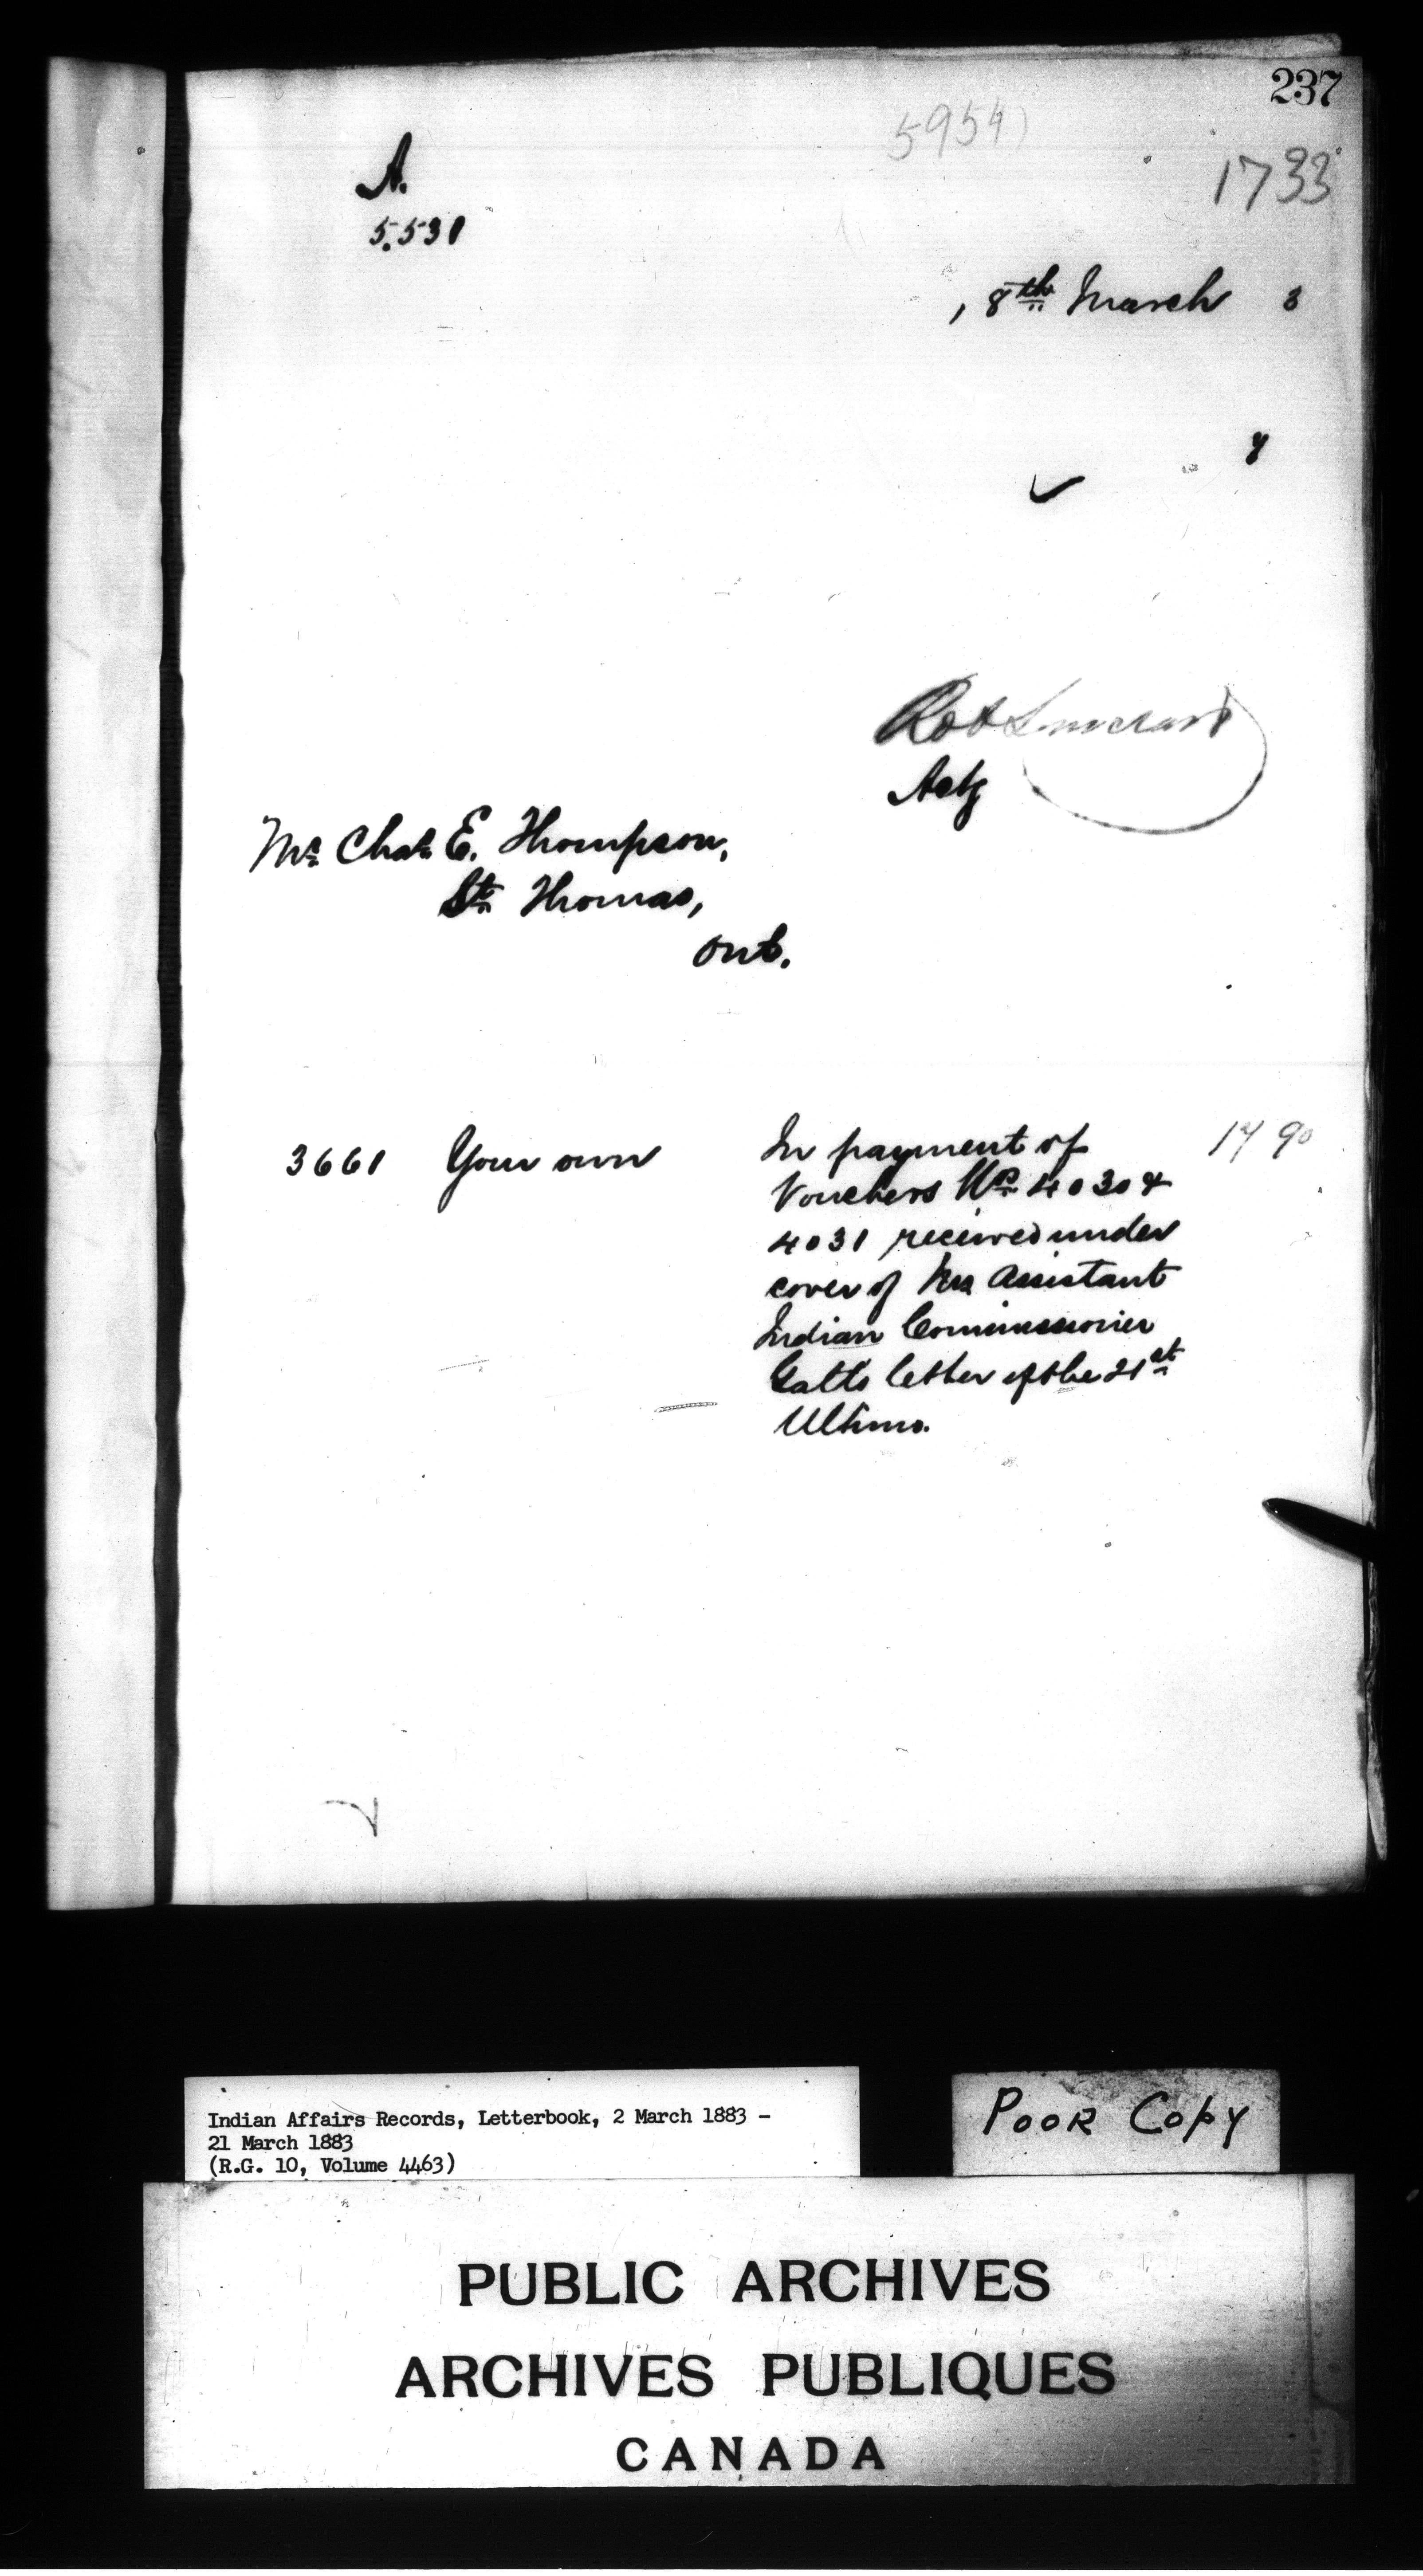 237
5954)
1733
A.
5.531
, 8th March 3
y
Rob Sinclair
Actg
Mr Chas E. Thompson,
St. Thomas,
Ont.
3661 Your own In payment of 17 90
Vouchers Nos 4030 &
4031 received under
cover of Mr Assistant
Indian Commissioner
Galt's letter of the 21st
Ultimo.
Indian Affairs Records, Letterbook, 2 March 1883 -
21 March 1883
(R.G. 10, Volume 4463)
POOR COPY
PUBLIC ARCHIVES
ARCHIVES PUBLIQUES
CANADA